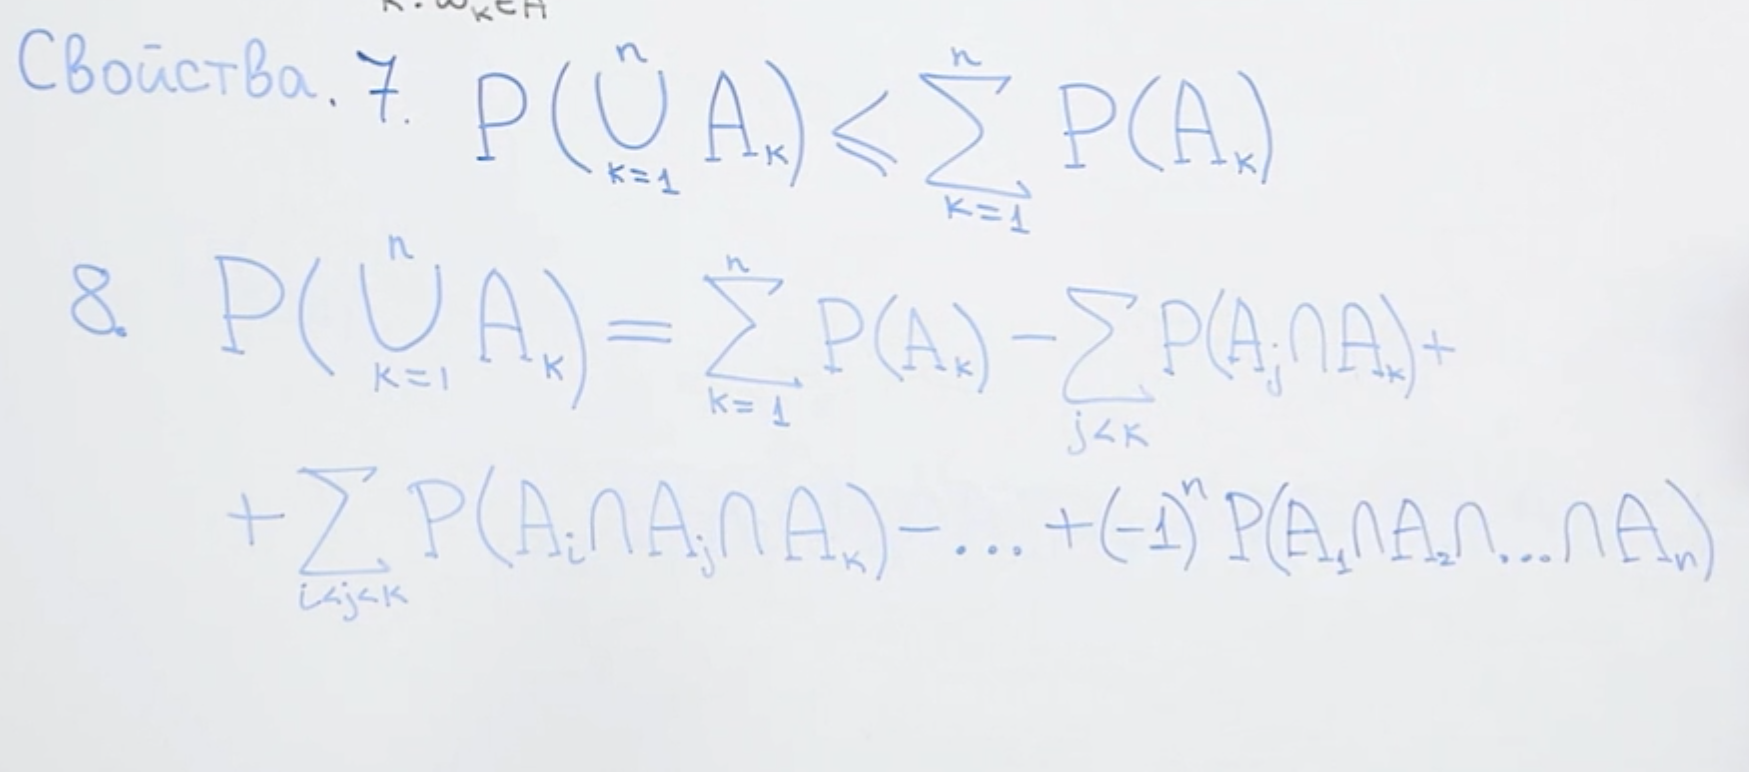 k: ω_k ∈ A
Свойства. 7. P(⋃_{k=1}^{n} A_k) ⩽ ∑_{k=1}^{n} P(A_k)
8. P(⋃_{k=1}^{n} A_k) = ∑_{k=1}^{n} P(A_k) − ∑_{j<k} P(A_j ∩ A_k) +
+ ∑_{i<j<k} P(A_i ∩ A_j ∩ A_k) − ... + (−1)^n P(A_1 ∩ A_2 ∩ ... ∩ A_n)